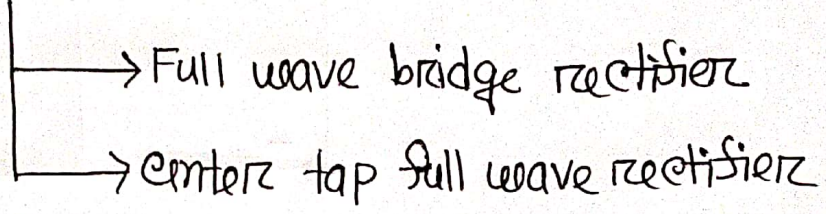 → Full wave bridge rectifier
→ center tap full wave rectifier